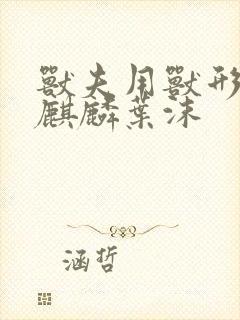 獸夫用獸形
麒麟葉沫
涵哲